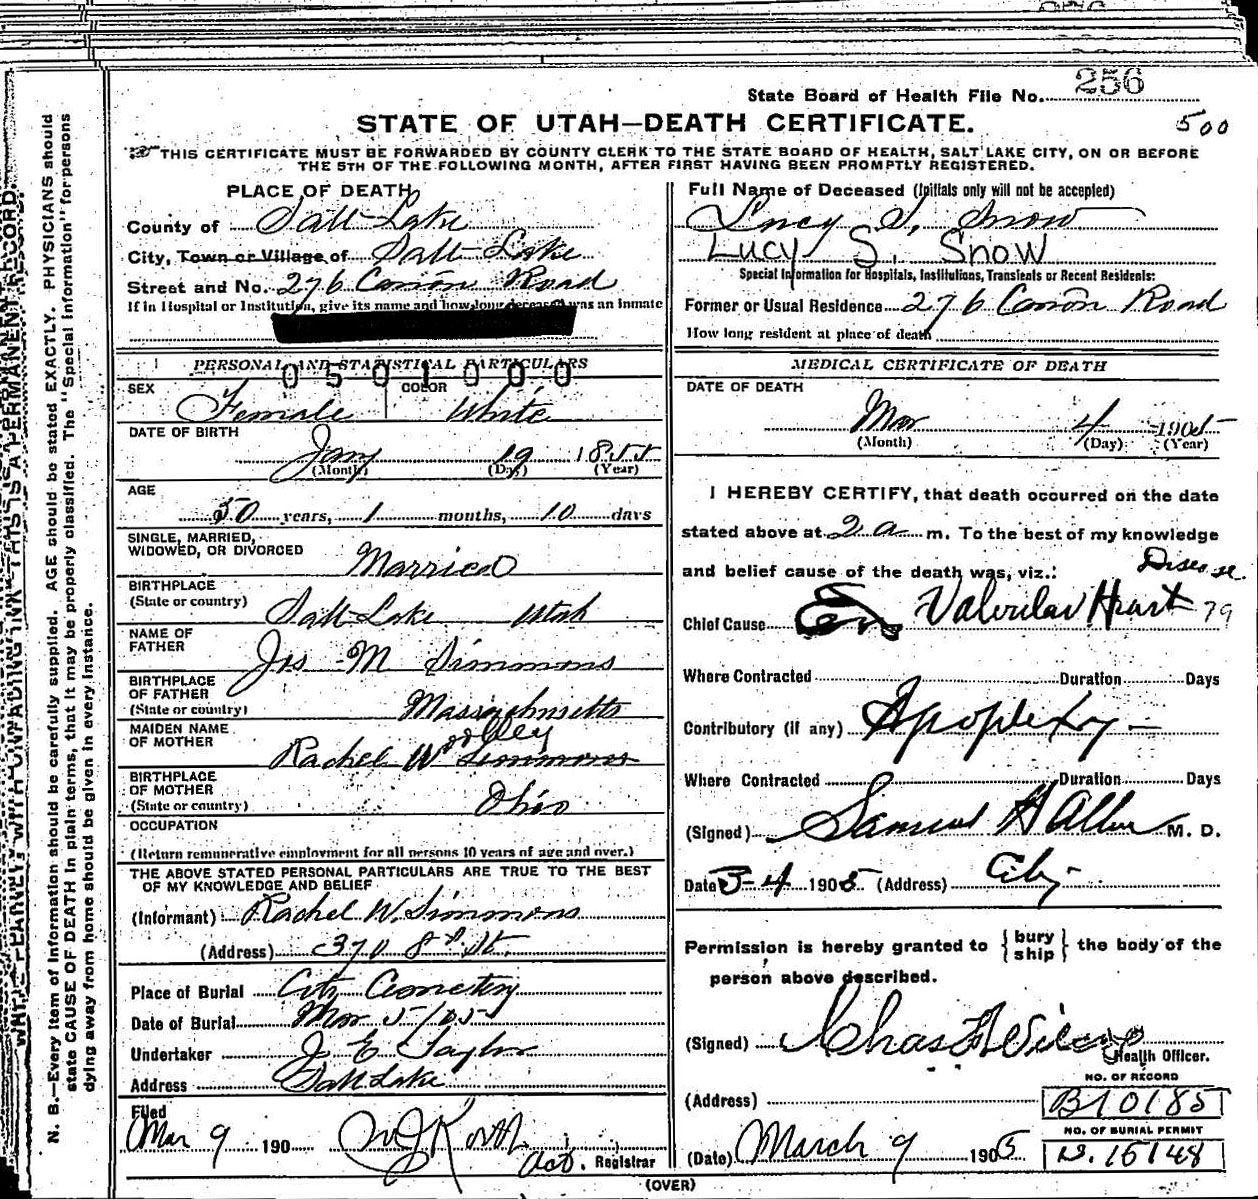 256
State Board of Health File No.
STATE OF UTAH—DEATH CERTIFICATE.
500
THIS CERTIFICATE MUST BE FORWARDED BY COUNTY CLERK TO THE STATE BOARD OF HEALTH, SALT LAKE CITY, ON OR BEFORE
THE 5TH OF THE FOLLOWING MONTH, AFTER FIRST HAVING BEEN PROMPTLY REGISTERED.
WRITE PLAINLY WITH UNFADING INK—THIS IS A PERMANENT RECORD.
N. B.—Every item of information should be carefully supplied. AGE should be stated EXACTLY. PHYSICIANS should
state CAUSE OF DEATH in plain terms, that it may be properly classified. The "Special Information" for persons
dying away from home should be given in every instance.
PLACE OF DEATH
County of Salt Lake
City, Town or Village of Salt Lake
Street and No. 276 Canon Road
If in Hospital or Institution, give its name and how long deceased was an inmate
PERSONAL AND STATISTICAL PARTICULARS
0501000
SEX COLOR
Female White
DATE OF BIRTH
Jany 19 1855
(Month) (Day) (Year)
AGE
50 years, 1 months, 10 days
SINGLE, MARRIED,
WIDOWED, OR DIVORCED Married
BIRTHPLACE
(State or country) Salt Lake Utah
NAME OF
FATHER Jos M Simmons
BIRTHPLACE
OF FATHER
(State or country) Massachusetts
MAIDEN NAME
OF MOTHER Rachel Woolley Simmons
BIRTHPLACE
OF MOTHER
(State or country) Ohio
OCCUPATION
(Return remunerative employment for all persons 10 years of age and over.)
THE ABOVE STATED PERSONAL PARTICULARS ARE TRUE TO THE BEST
OF MY KNOWLEDGE AND BELIEF
(Informant) Rachel W. Simmons
(Address) 370 8th St.
Place of Burial City Cemetery
Date of Burial Mar 5/05
Undertaker J E Taylor
Address Salt Lake
Filed
Mar 9 190
Act. Registrar
Full Name of Deceased (Initials only will not be accepted)
Lucy S. Snow
Lucy S. Snow
Special Information for Hospitals, Institutions, Transients or Recent Residents:
Former or Usual Residence 276 Canon Road
How long resident at place of death
MEDICAL CERTIFICATE OF DEATH
DATE OF DEATH
Mar 4 1905
(Month) (Day) (Year)
I HEREBY CERTIFY, that death occurred on the date
stated above at 2 a m. To the best of my knowledge
and belief cause of the death was, viz.: Disease
Chief Cause Valvular Heart 79
Where Contracted Duration Days
Contributory (if any) Apoplexy —
Where Contracted Duration Days
(Signed) Samuel H Allen M. D.
Date 3-4 1905 (Address) City
Permission is hereby granted to {bury ship} the body of the
person above described.
(Signed) Chas F Wilcox
Health Officer.
NO. OF RECORD
(Address) B10185
NO. OF BURIAL PERMIT
(Date) March 9 1905 D.15148
(OVER)